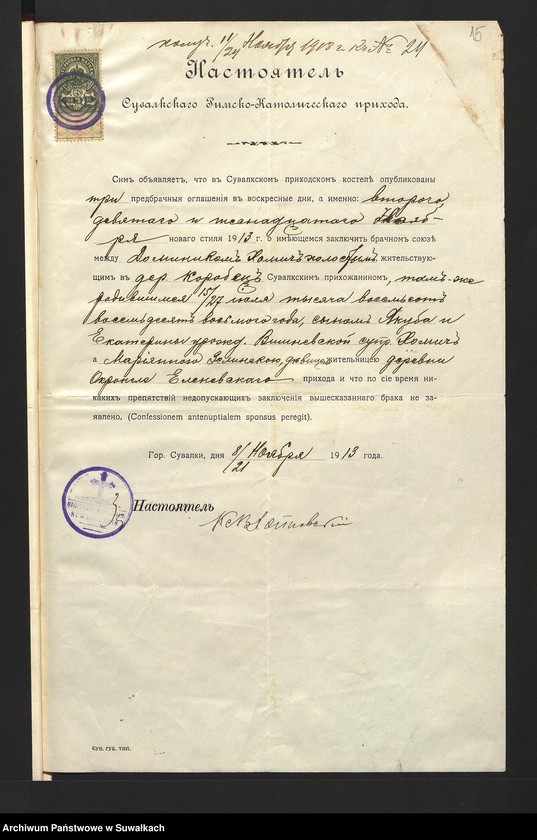 получ. 11/24 Ноября 1913 г. за № 24
15
Настоятель
Сувалкскаго Римско-Католическаго прихода.
Симъ объявляетъ, что въ Сувалкскомъ приходскомъ костелѣ опубликованы
три предбрачныя оглашенія въ воскресные дни, а именно: второго,
девятаго и шестнадцатаго Нояб-
ря новаго стиля 1913 г. о имѣющемся заключить брачномъ союзѣ
между Домиником Хомичъ холостымъ, жительствую-
щимъ въ дер. Коробецъ Сувалкскимъ прихожаниномъ, тамъ-же
родившимся 15/27 іюля тысяча восемьсотъ
восемьдесятъ восьмого года, сыномъ Якуба и
Екатерины урожд. Вишневской супр. Хомичъ
а Маріанною дѣвицею жительницею деревни
Еленевскаго прихода и что по сіе время ни-
какихъ препятствій недопускающихъ заключенія вышесказаннаго брака не за-
явлено. (Confessionem antenuptialem sponsus peregit).
Гор. Сувалки, дня 8/21 Ноября 1913 года.
Настоятель
Сув. губ. тип.
Archiwum Państwowe w Suwałkach